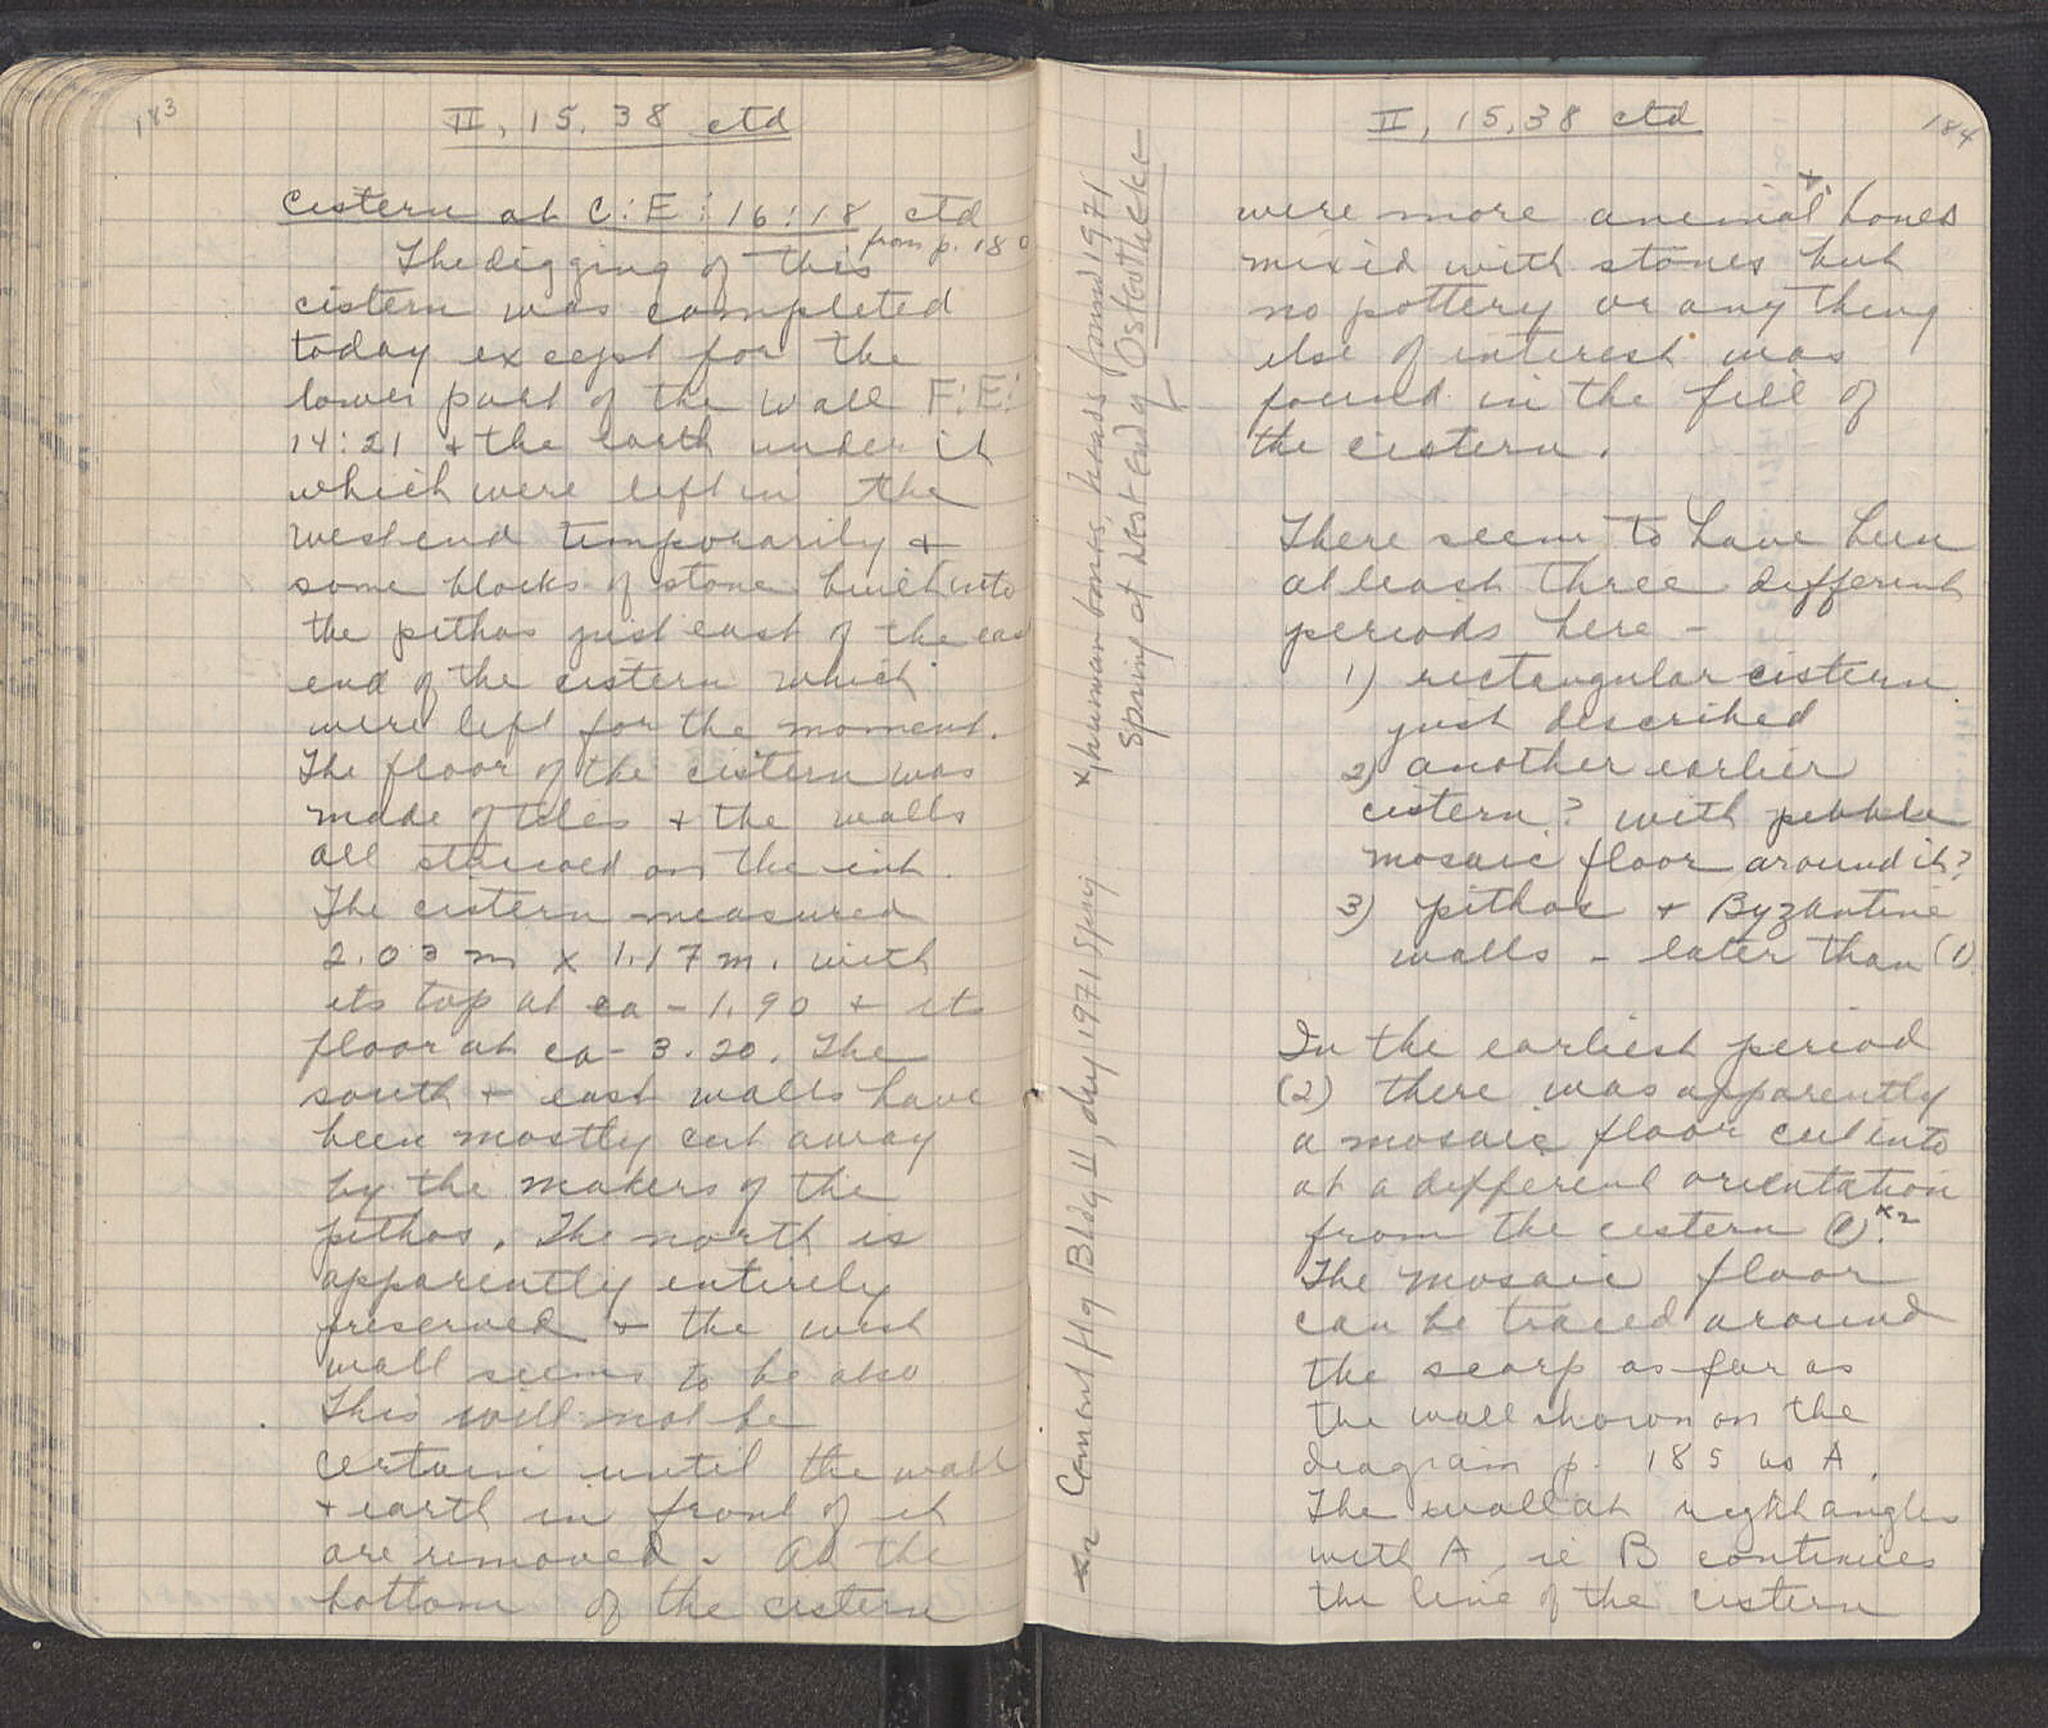 183
II, 15, 38 ctd
Cistern at C:E:16:18 ctd
from p. 180
The digging of this
cistern was completed
today except for the
lower part of the wall F:E:
14:21 + the earth under it
which were left in the
west end temporarily +
some blocks of stone built into
the pithos just east of the eas
end of the cistern which
were left for the moment.
The floor of the cistern was
made of tiles + the walls
all stuccoed on the int.
The cistern measured
2.03 m x 1.17 m. with
its top at ca - 1.90 + its
floor at ca - 3.20. The
south + east walls have
been mostly cut away
by the makers of the
pithos. The north is
apparently entirely
preserved + the west
wall seems to be also
This will not be
certain until the wall
+ earth in front of it
are removed. At the
bottom of the cistern
184
II, 15, 38 ctd
were more animal x bones
mixed with stones but
no pottery or any thing
else of interest was
found in the fill of
the cistern.
There seem to have been
at least three different
periods here -
1) rectangular cistern
just described
2) another earlier
cistern? with pebble
mosaic floor around it?
3) pithos + Byzantine
walls - later than (1)
In the earliest period
(2) there was apparently
a mosaic floor cut into
at a different orientation
from the cistern (1). x2
The mosaic floor
can be traced around
the scarp as far as
the wall shown on the
diagram p. 185 as A.
The wall at right angles
with A, ie B continues
the line of the cistern
x, human bones, heads found 1971
Spring at West End of Ostoutheke
x2 Cement flg Bldg II, dug 1971 Spring